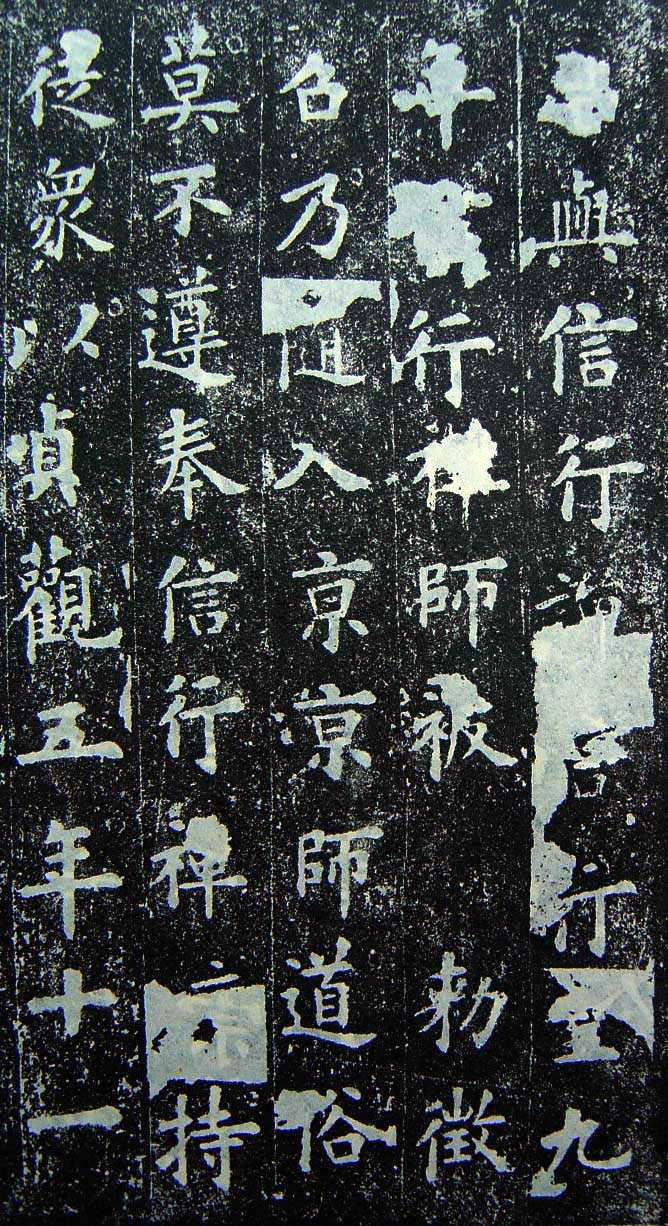 與信行 行至九
年 行禪師被 勑徵
召乃随入京京師道俗
莫不遵奉信行禪 持
徒衆以貞觀五年十一